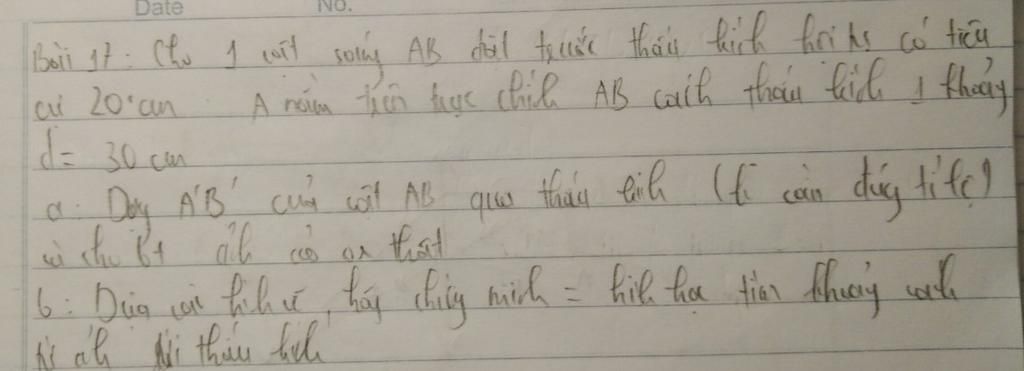 Date No.
Bài 17: Cho 1 vật sáng AB đặt trước thấu kính hội tụ có tiêu
cự 20 cm A nằm trên trục chính AB cách thấu kính 1 khoảng
d = 30 cm
a: Dựng A'B' của vật AB qua thấu kính ( cần đúng tỉ lệ)
và cho ảnh thật
b: Dựa vào hình vẽ, hãy chứng minh = hình học tìm khoảng cách
từ ảnh tới thấu kính